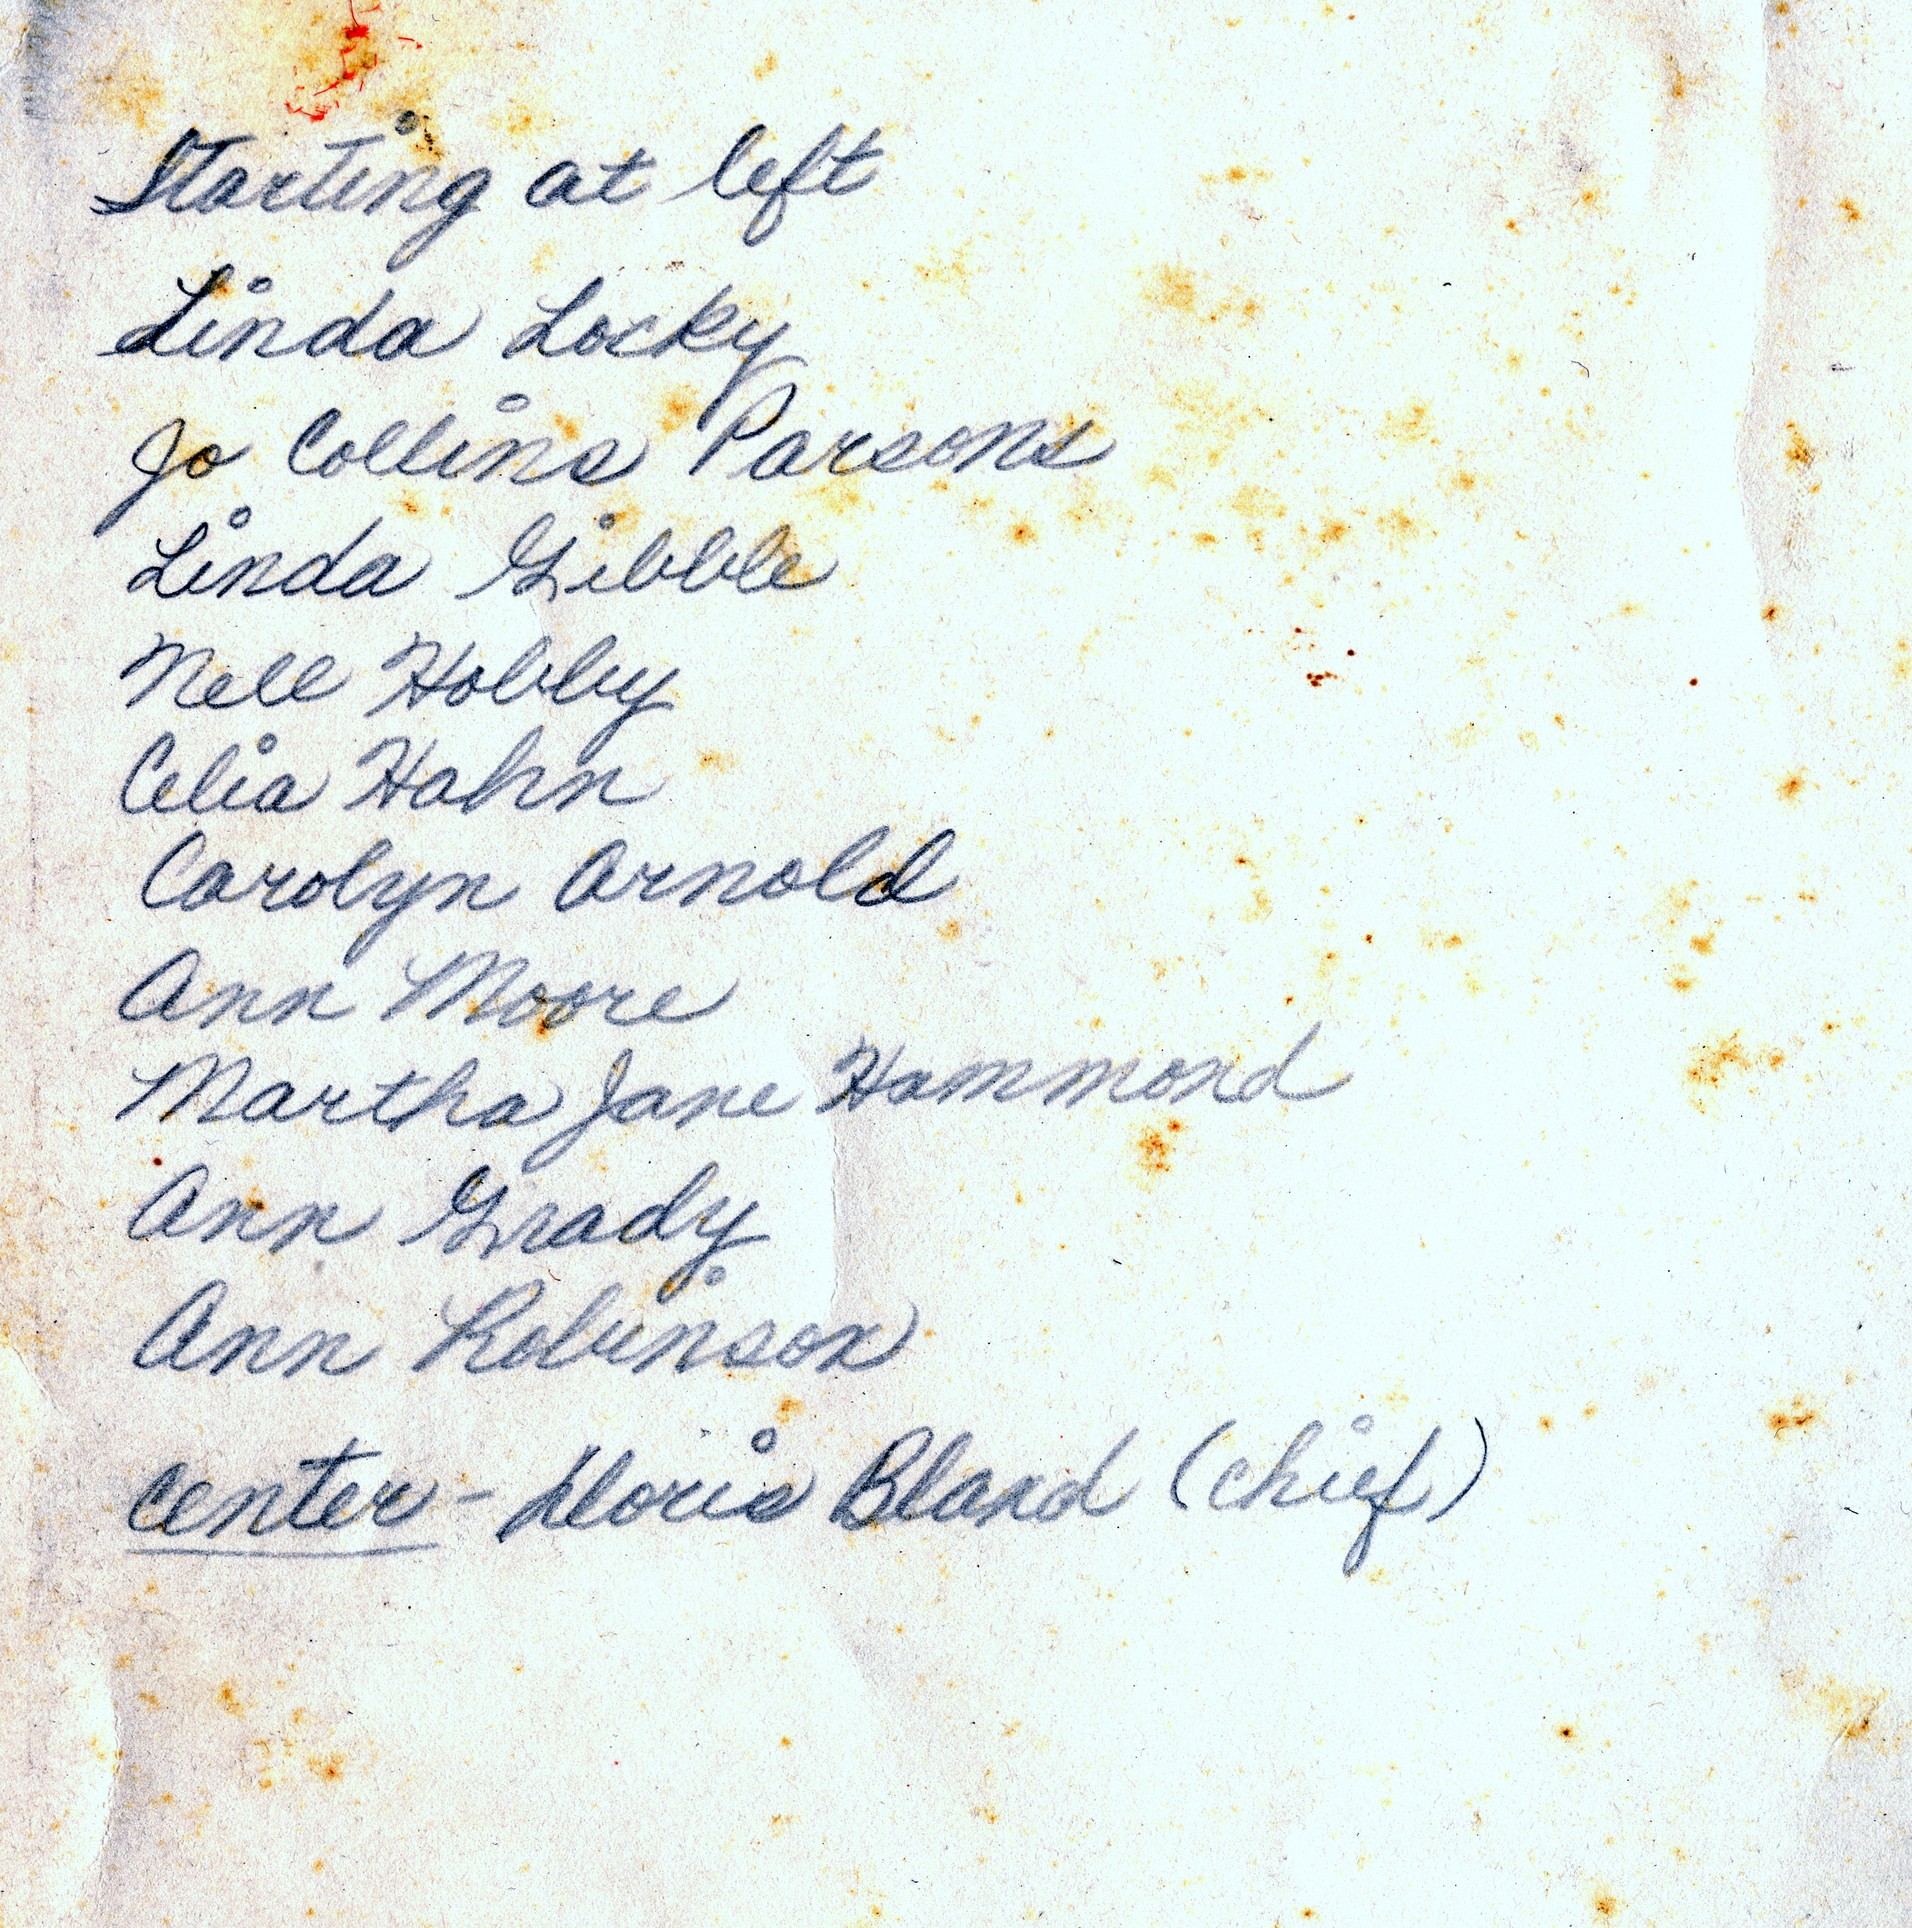 Starting at left
Linda Locky
Jo Collins Parsons
Linda Gibble
Nell Hobby
Celia Hahn
Carolyn Arnold
Ann Moore
Martha Jane Hammond
Ann Grady
Ann Robinson
center - Doris Bland (chief)